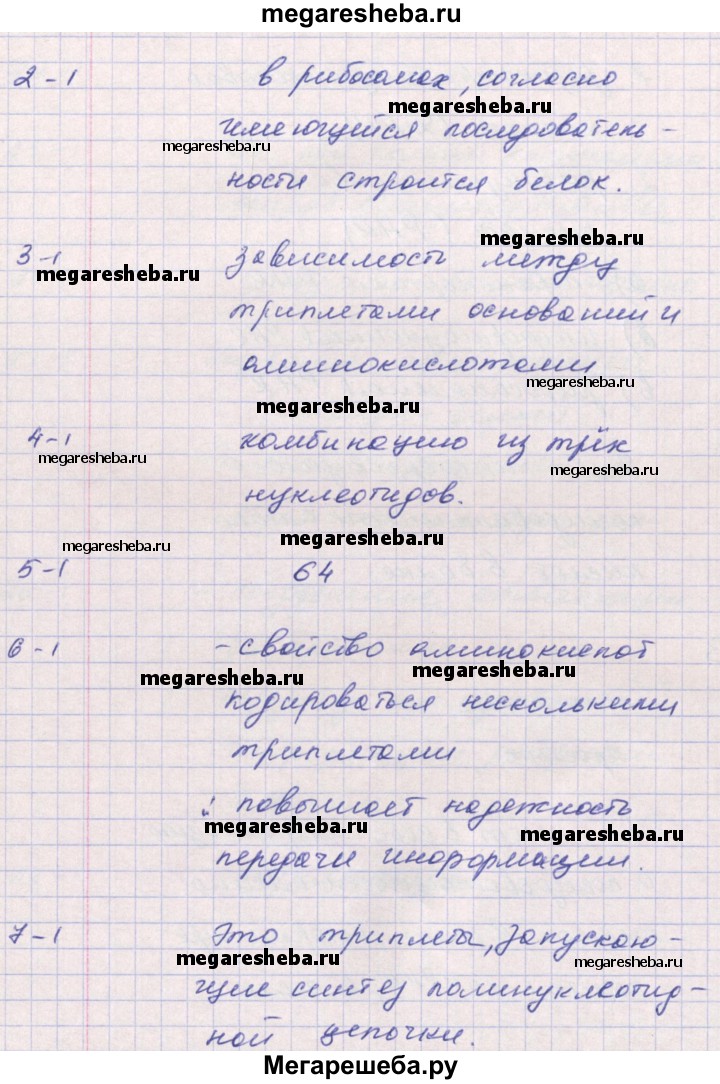 megaresheba.ru
2-1 в рибосомах, согласно
megaresheba.ru
имеющейся последователь-
megaresheba.ru
ности строится белок.
megaresheba.ru
3-1 зависимость между
megaresheba.ru
триплетами оснований и
аминокислотами
megaresheba.ru
megaresheba.ru
4-1 комбинацию из трёх
megaresheba.ru
megaresheba.ru
нуклеотидов.
megaresheba.ru
megaresheba.ru
5-1 64
6-1 - свойство аминокислот
megaresheba.ru
megaresheba.ru
кодироваться несколькими
триплетами
: повышает надежность
megaresheba.ru
megaresheba.ru
передачи информации.
7-1 Это триплеты, запускаю-
megaresheba.ru
megaresheba.ru
щие синтез полинуклеотид-
ной цепочки.
Мегарешеба.ру